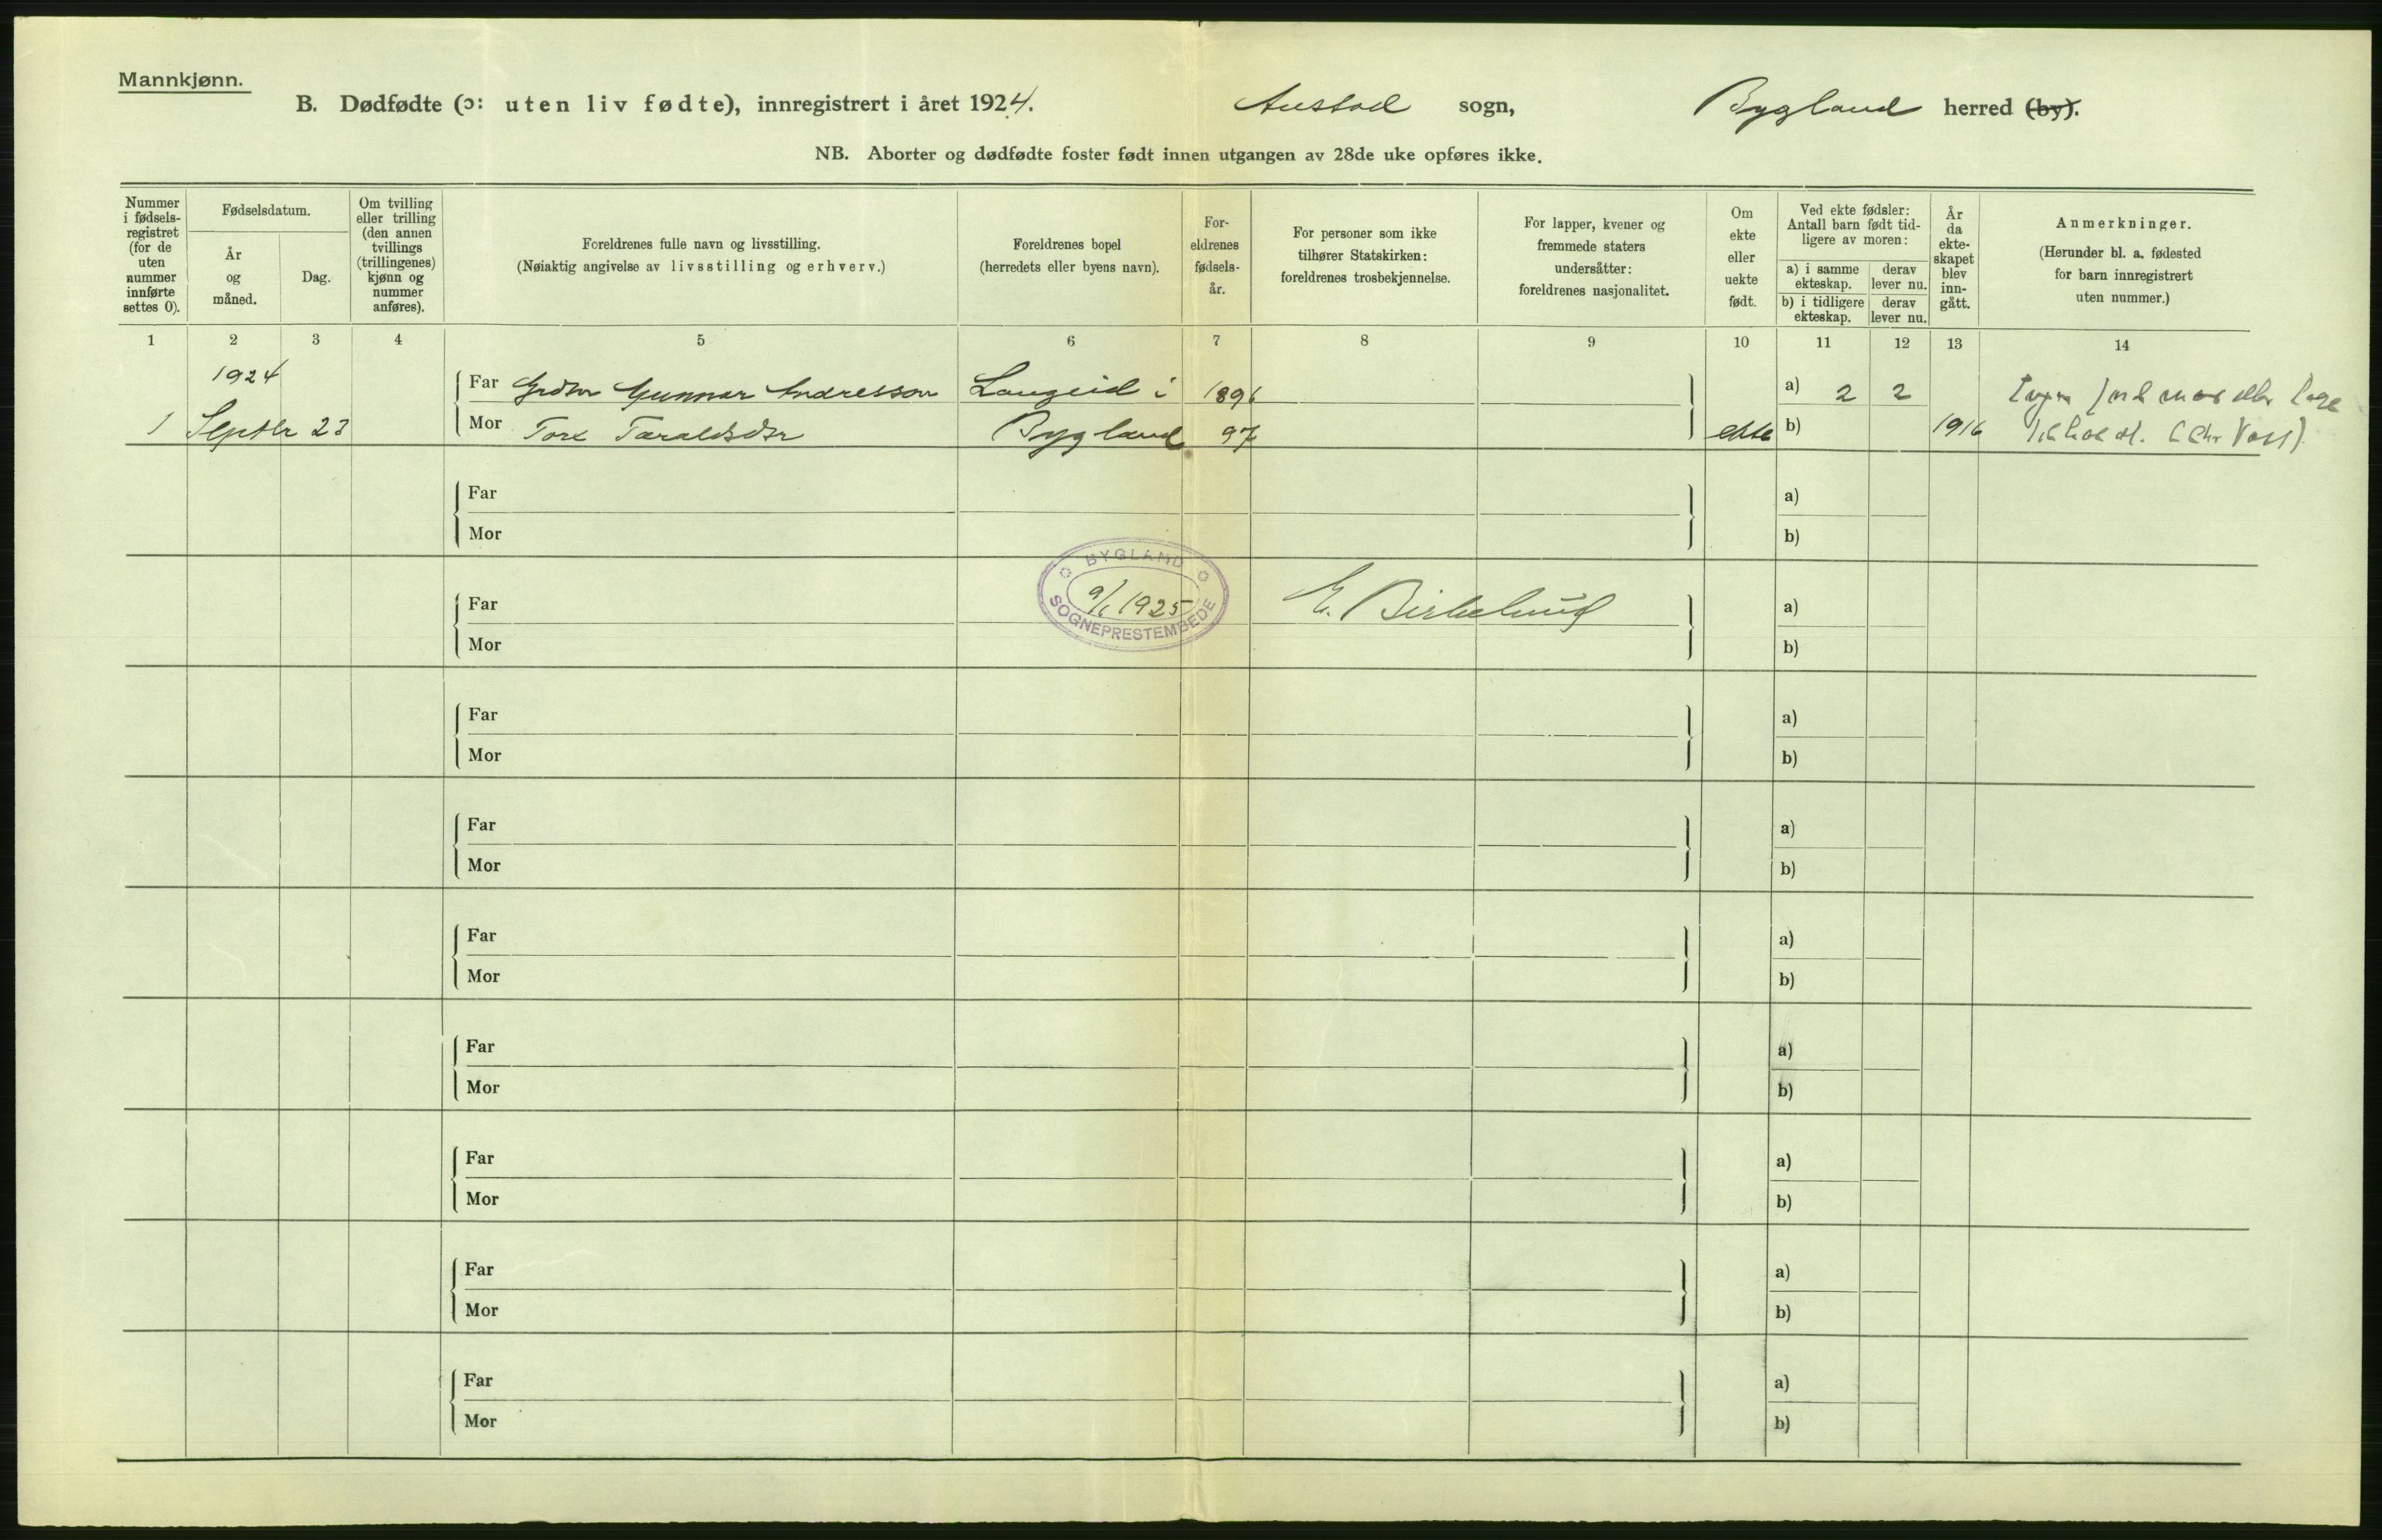 Mannkjønn.
B. Dødfødte (ɔ: uten liv fødte), innregistrert i året 1924. Austad sogn, Bygland herred (by).
NB. Aborter og dødfødte foster født innen utgangen av 28de uke opføres ikke.
Nummer i fødsels-registret (for de uten nummer innførte settes 0).
Fødselsdatum.
År og måned.
Dag.
Om tvilling eller trilling (den annen tvillings (trillingenes) kjønn og nummer anføres).
Foreldrenes fulle navn og livsstilling.
(Nøiaktig angivelse av livsstilling og erhverv.)
Foreldrenes bopel
(herredets eller byens navn).
For-eldrenes fødsels-år.
For personer som ikke tilhører Statskirken: foreldrenes trosbekjennelse.
For lapper, kvener og fremmede staters undersåtter: foreldrenes nasjonalitet.
Om ekte eller uekte født.
Ved ekte fødsler: Antall barn født tid-ligere av moren:
a) i samme ekteskap.
derav lever nu.
b) i tidligere ekteskap.
derav lever nu.
År da ekte-skapet blev inn-gått.
Anmerkninger.
(Herunder bl. a. fødested for barn innregistrert uten nummer.)
1 2 3 4 5 6 7 8 9 10 11 12 13 14
1924
Far Gunnar Andresson Langeid i 1896 a) 2 2
1 Septbr 23 Mor Tore Taraldsdtr Bygland 97 ekte b) 1916
Far a)
Mor b)
BYGLAND
9/1 1925
SOGNEPRESTEMBEDE
E. Birkelund
Far a)
Mor b)
Far a)
Mor b)
Far a)
Mor b)
Far a)
Mor b)
Far a)
Mor b)
Far a)
Mor b)
Far a)
Mor b)
Far a)
Mor b)